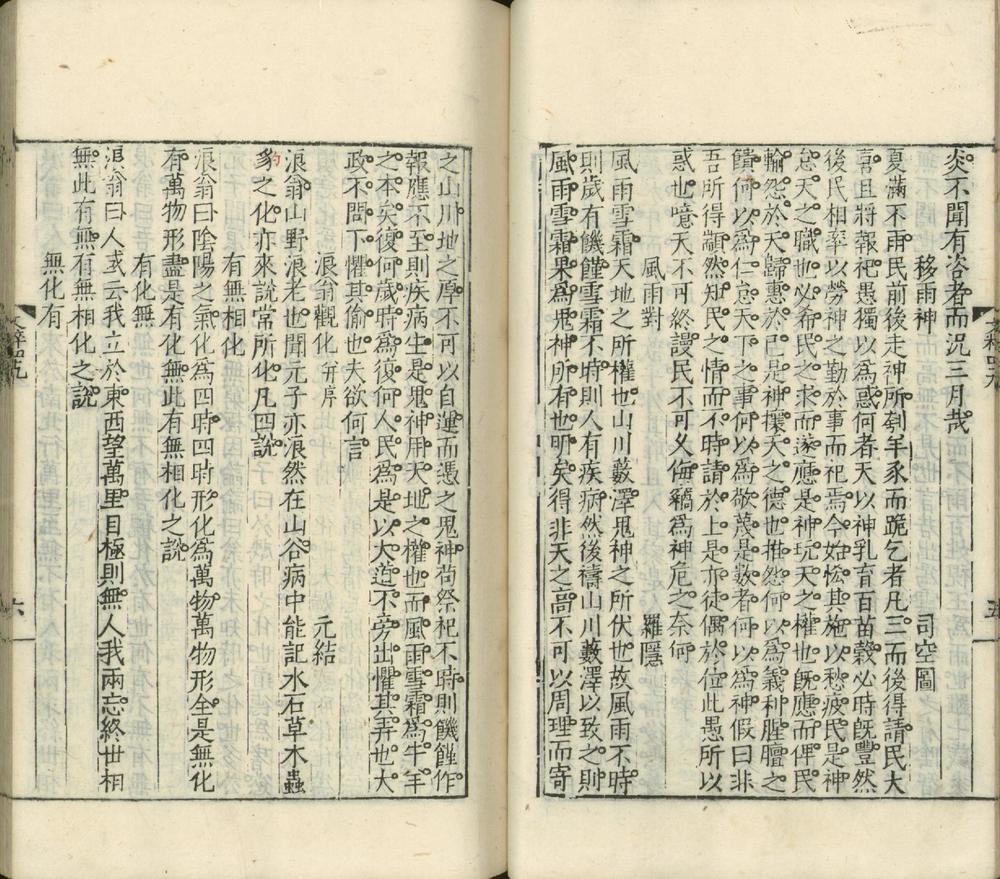 炎不聞有咨者而況三月哉
移雨神　司空圖
夏滿不雨民前後走神所刳羊豕而跪乞者凡三而後得請民大
喜且將報祀愚獨以為惑何者天以神乳育百苗穀必時既豐然
後民相率以勞神之勤於事而祀焉今始恡其施以愁疲民是神
怠天之職也必希民之求而遂應是神玩天之權也既應而俾民
輸怨於天歸惠於己是神攘天之德也推怨何以為義利腥膻之
饋何以為仁怠天下之事何以為敬蔑是數者何以為神假曰非
吾所得顓然知民之情而不時請於上是亦徒偶於位此愚所以
惑也噫天不可終謾民不可久侮竊為神危之奈何
風雨對　羅隱
風雨雪霜天地之所權也山川藪澤鬼神之所伏也故風雨不時
則歲有饑饉雪霜不時則人有疾病然後禱山川藪澤以致之則
風雨雪霜果為鬼神所有也明矣得非天之高不可以周理而寄
之山川地之厚不可以自運而憑之鬼神苟祭祀不時則饑饉作
報應不至則疾病生是鬼神用天地之權也而風雨雪霜為牛羊
之本矣復何歲時為復何人民為是以大道不旁出懼其弄也大
政不問下懼其偷也夫欲何言
浪翁觀化 并序　元結
浪翁山野浪老也聞元子亦浪然在山谷病中能記水石草木蟲
豸之化亦來說常所化凡四說
有無相化
浪翁曰陰陽之氣化為四時四時形化為萬物萬物形全是無化
有萬物形盡是有化無此有無相化之說
有化無
浪翁曰人或云我立於東西望萬里目極則無人我兩忘終世相
無此有無有無相化之說
無化有
五
六